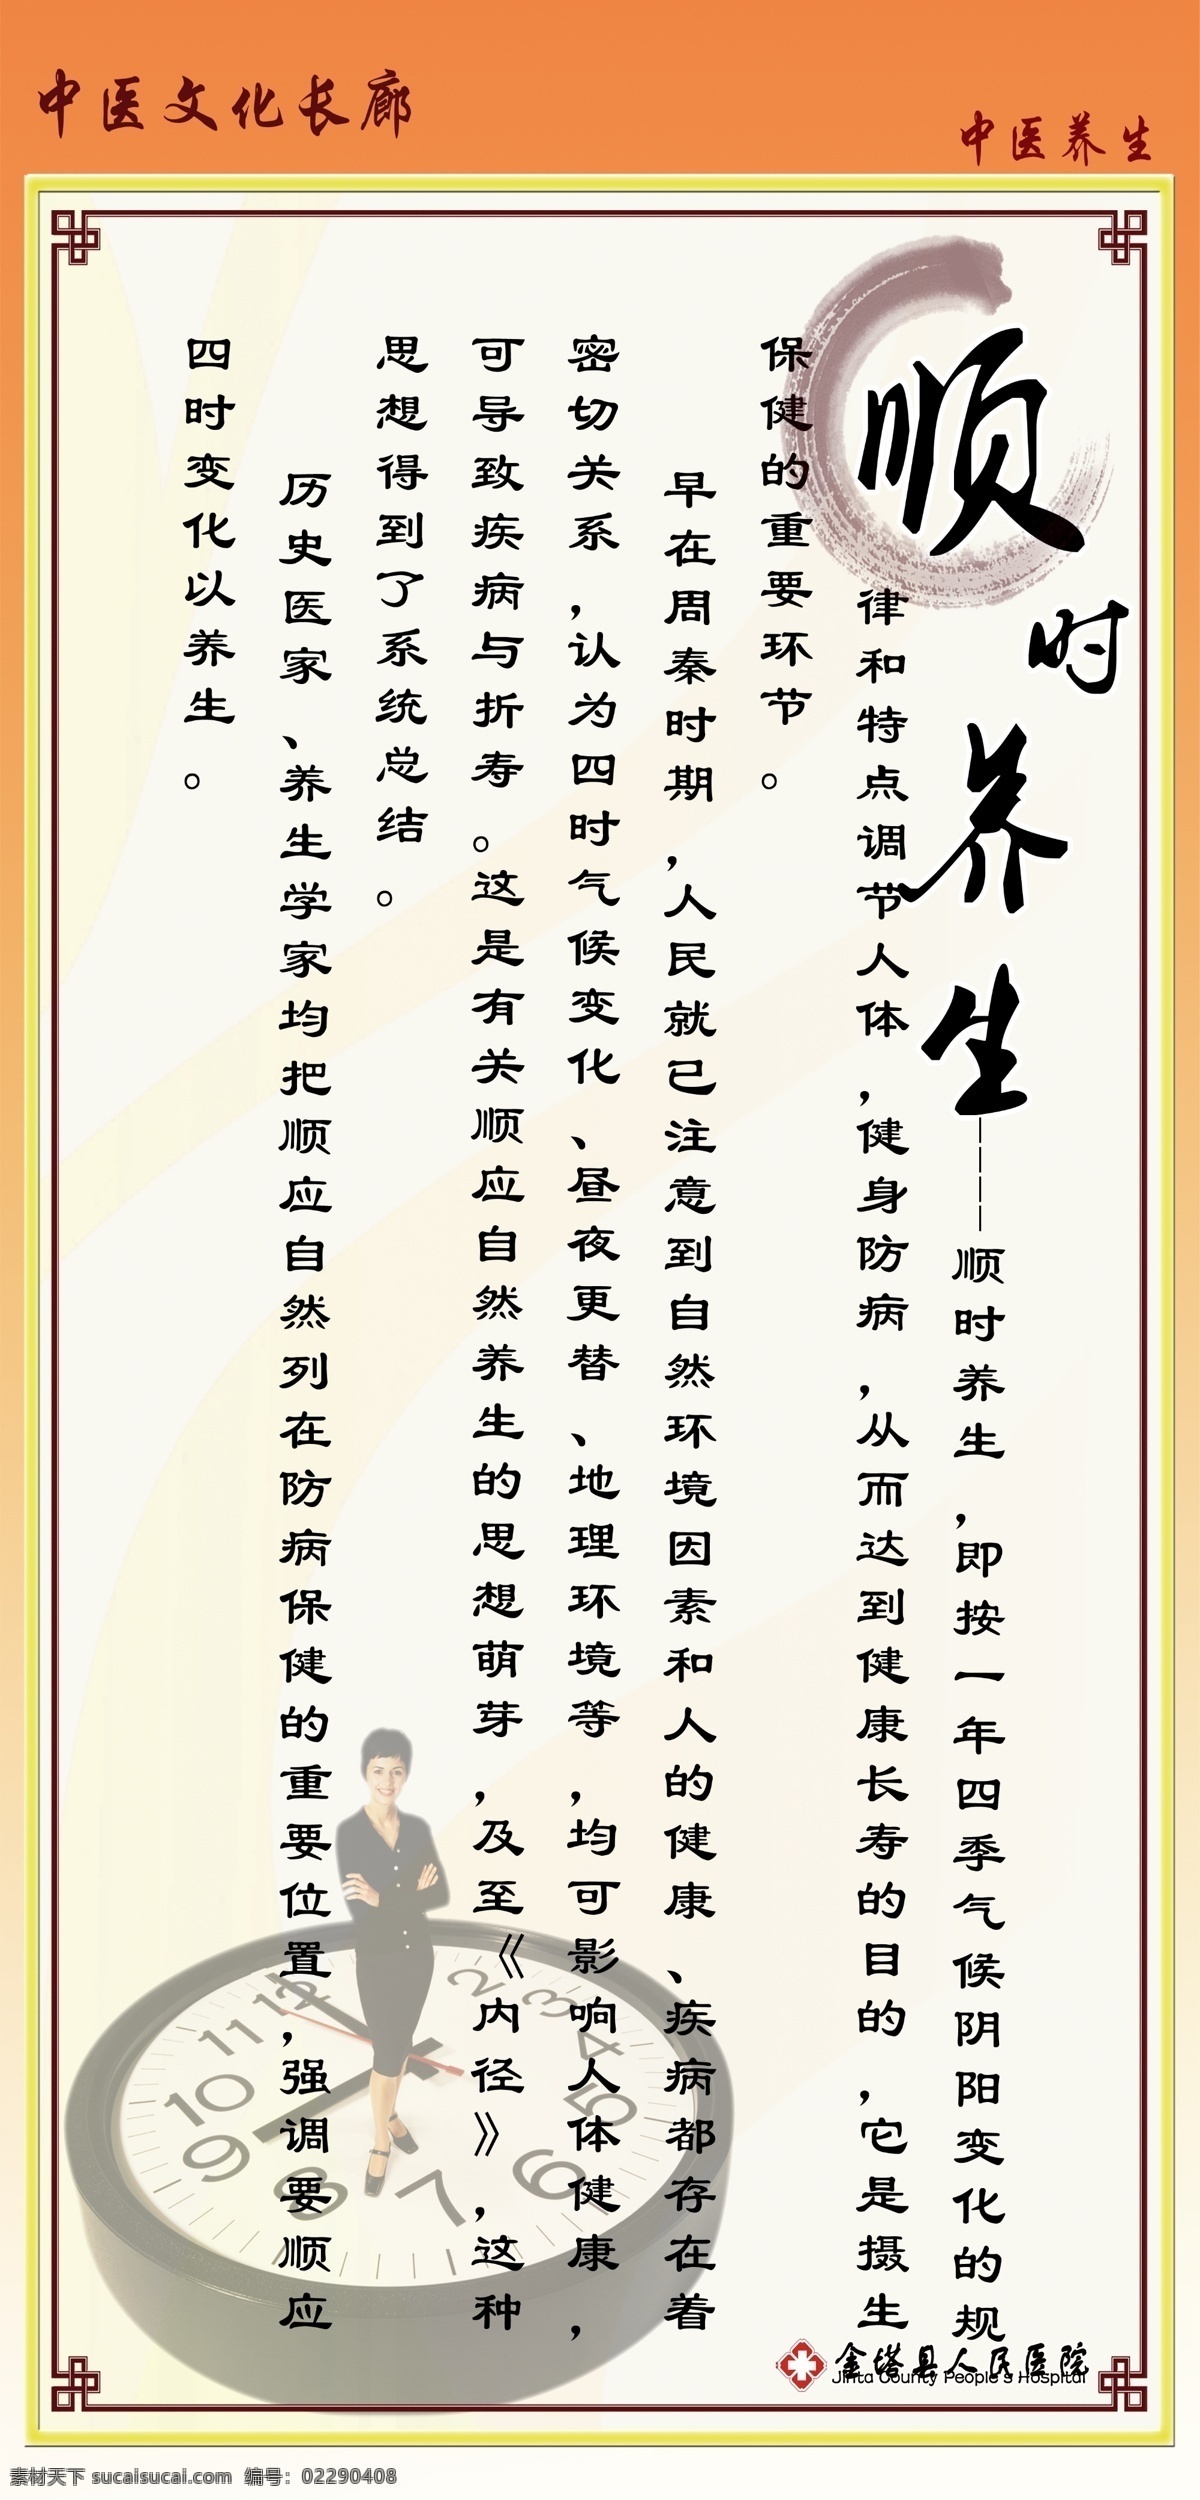 中医文化长廊
中医养生
顺时养生————顺时养生,即按一年四季气候阴阳变化的规
律和特点调节人体,健身防病,从而达到健康长寿的目的,它是摄生
保健的重要环节。
早在周秦时期,人民就已注意到自然环境因素和人的健康、疾病都存在着
密切关系,认为四时气候变化、昼夜更替、地理环境等,均可影响人体健康,
可导致疾病与折寿。这是有关顺应自然养生的思想萌芽,及至《内径》,这种
思想得到了系统总结。
历史医家、养生学家均把顺应自然列在防病保健的重要位置,强调要顺应
四时变化以养生。
12
2
3
4
5
6
7
8
9
10
11
金塔县人民医院
Jinta County People's Hospital
素材天下 sucaisucai.com 编号:02290408